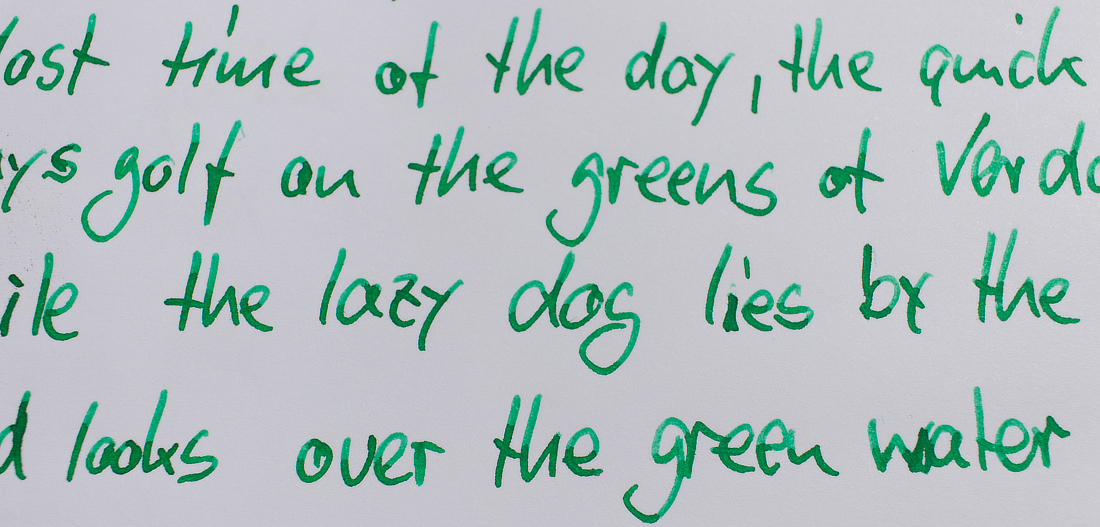 time of the day, the quick
golf on the greens of
the lazy dog lies by the
looks over the green water